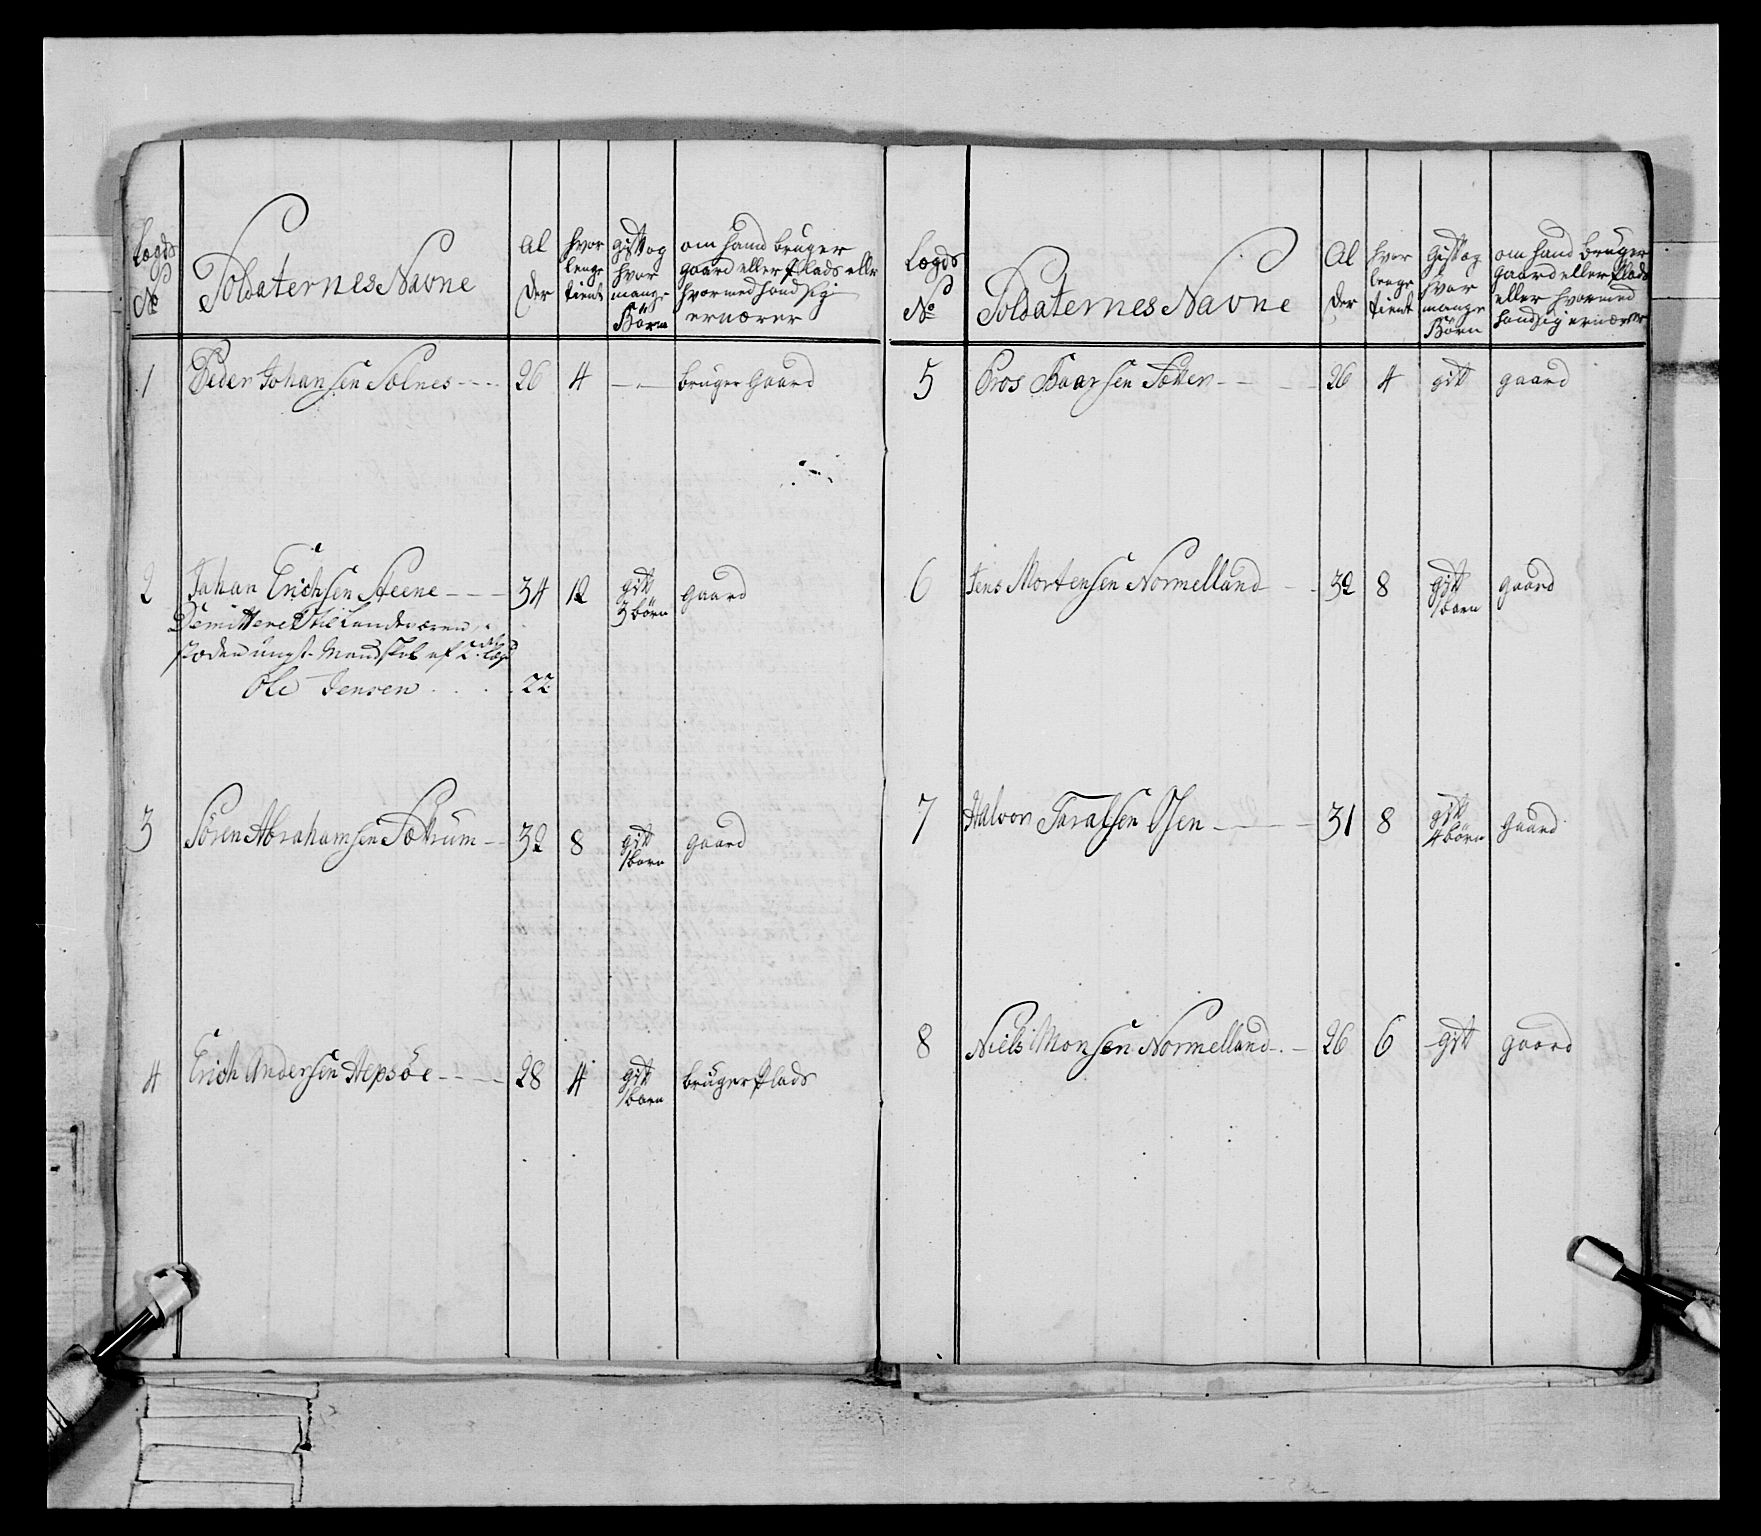 Lægds
No
Soldaternes Navne
Al
der
hvor
lenge
tient
gift og
hvor
mange
Börn
om hand bruger
gaard eller Plads eller
hvormed hand sig
ernærer
1 Peder Johansen Solnes 26 4 bruger gaard
2 Johan Erichsen Steene 34 12 gift 3 börn gaard
Demitteret til Landeværen,
steden ungt Mandskab af Lægd
Ole Jensen 22
3 Sören Abrahamsen Sættrum 32 8 gift 1 barn gaard
4 Erich Andersen Hepsöe 28 4 gift 1 barn bruger Plads
Lægds
No
Soldaternes Navne
Al
der
hvor
lenge
tient
gift og
hvor
mange
Börn
om hand bruger
gaard eller Plads
eller hvormed
hand sig ernærer
5 Baarsen 26 4 gift gaard
6 Jens Mortensen Normelland 32 8 gift 1 barn gaard
7 Halvor Taralsen Osen 31 8 gift 4 börn gaard
8 Niels Monsen Normelland 26 6 gift gaard